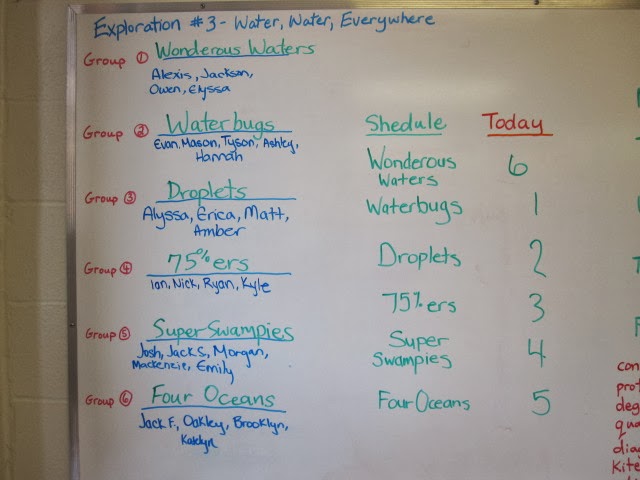 Exploration #3 - Water, Water, Everywhere
Group 1 Wonderous Waters
Alexis, Jackson,
Owen, Elyssa
Group 2 Waterbugs
Evan, Mason, Tyson, Ashley,
Hannah
Group 3 Droplets
Alyssa, Erica, Matt,
Amber
Group 4 75%ers
Ian, Nick, Ryan, Kyle
Group 5 Super Swampies
Josh, Jack S, Morgan,
Mackenzie, Emily
Group 6 Four Oceans
Jack F, Oakley, Brooklyn,
Katelyn
Shedule Today
Wonderous
Waters 6
Waterbugs 1
Droplets 2
75%ers 3
Super
Swampies 4
Four Oceans 5
con
deg
qua
dia
Kite